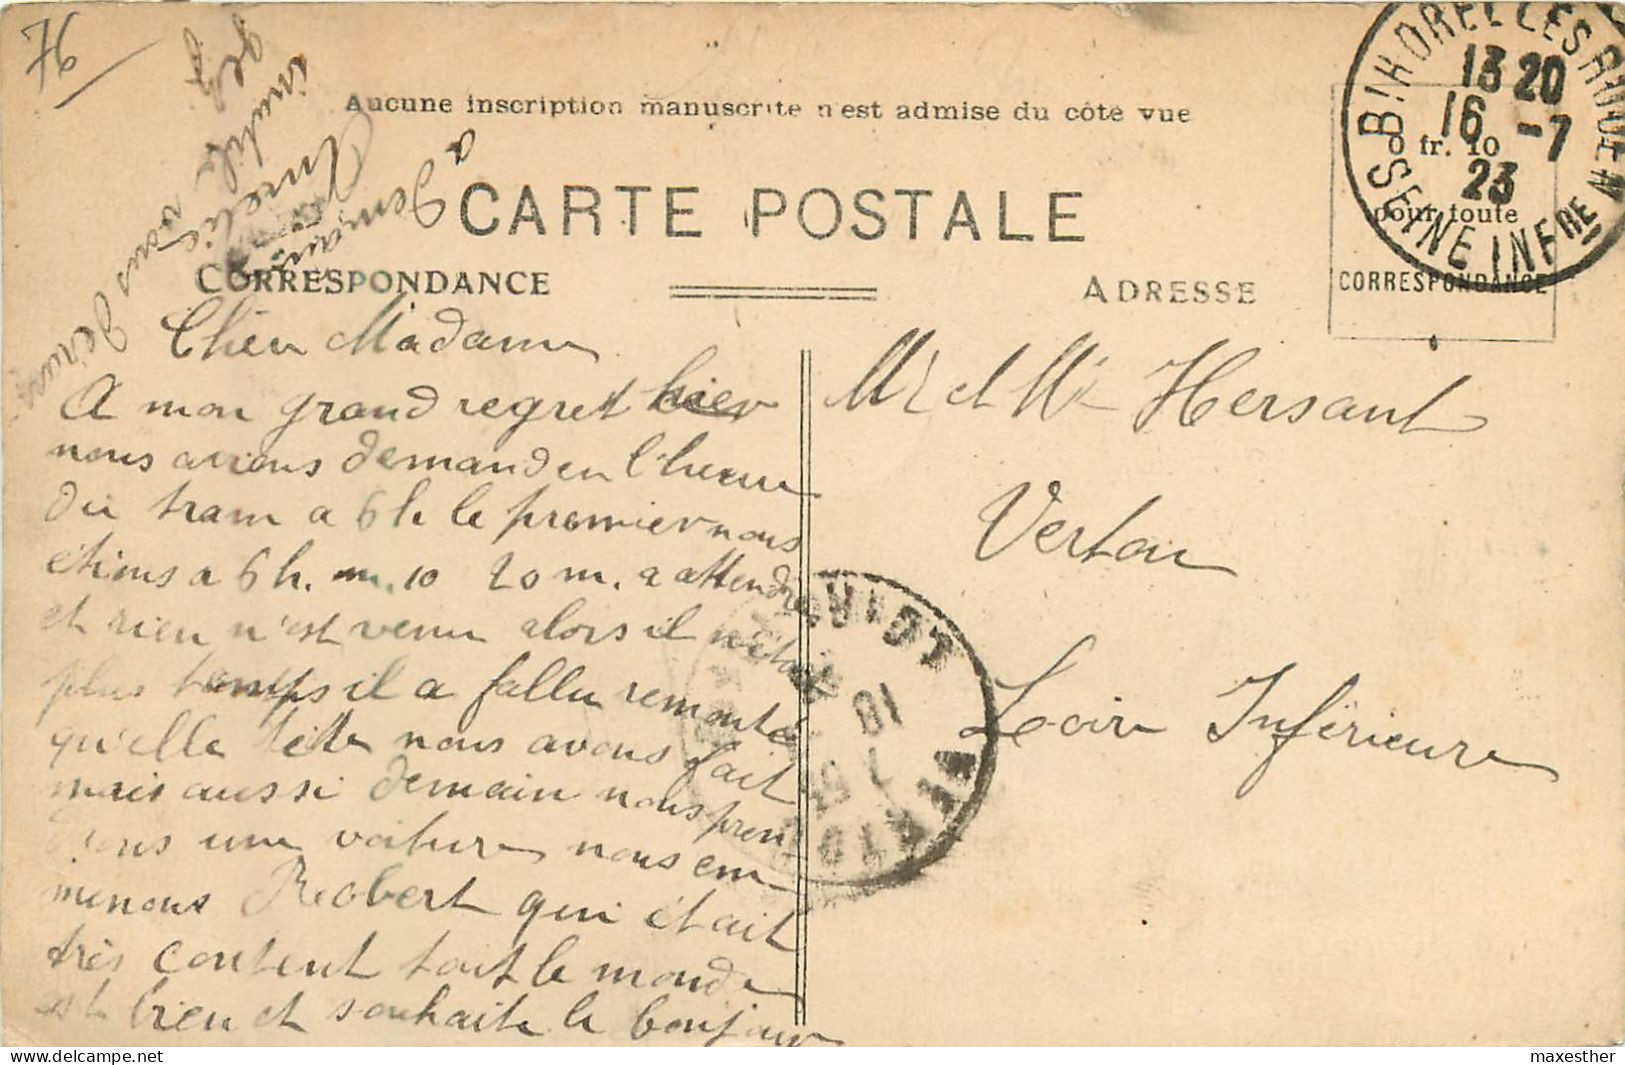 76
Aucune inscription manuscrite n'est admise du côté vue
CARTE POSTALE
CORRESPONDANCE
ADRESSE
BIHOREL LES ROUEN
13 20
16 -7
23
SEINE INFRE
0 fr. 10
pour toute
CORRESPONDANCE
Chèr Madame
A mon grand regret hier
nous avions demander l'heure
du tram a 6 h le premier nous
étions a 6 h. m. 10 20 m. a attendre
et rien n'est venu alors il n'était
plus temps il a fallu remonté
qu'elle tête nous avons fait
mais aussi demain nous pren
dons une voiture nous em
menons Robert qui était
très content tout le monde
est bien et souhaite le bonjour
a demain
Amélie
inutile vous
Mr et Me Hersant
Vertou
Loire Inférieure
VERTOU
18
7
maxesther